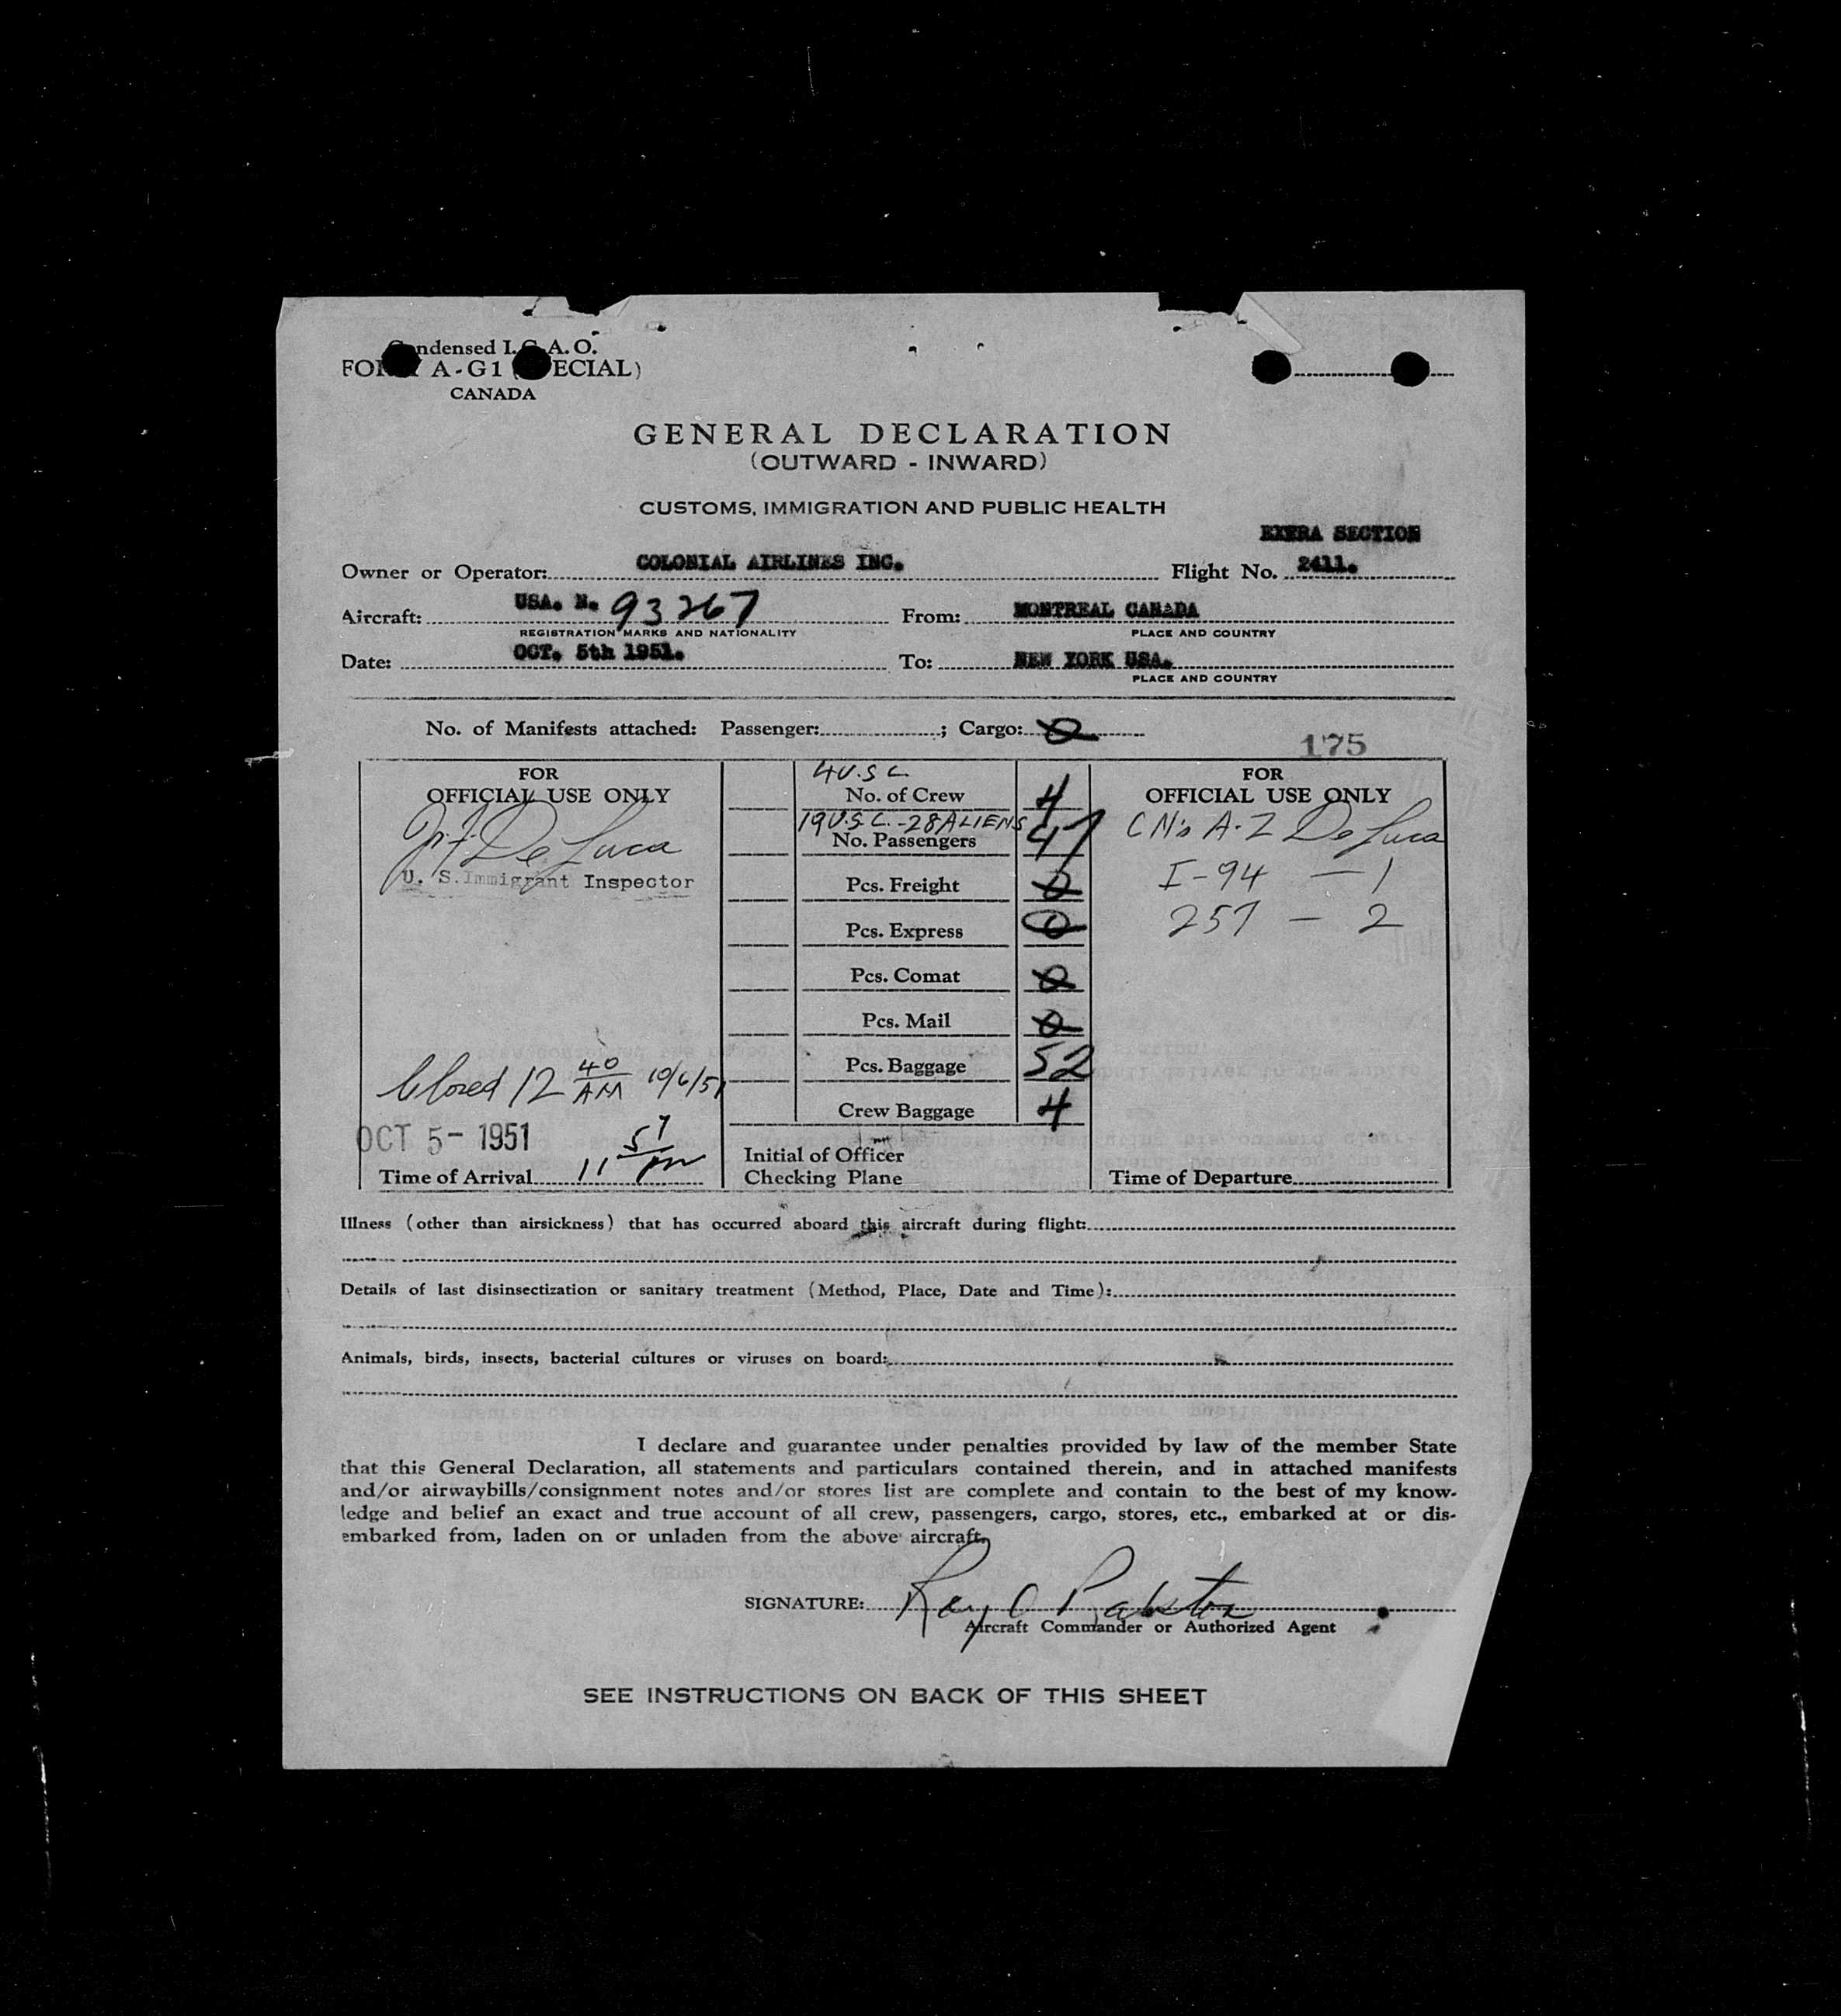 Condensed I.C.A.O.
FORM A-G1 (SPECIAL)
CANADA
GENERAL DECLARATION
(OUTWARD - INWARD)
CUSTOMS, IMMIGRATION AND PUBLIC HEALTH
EXTRA SECTION
Owner or Operator: COLONIAL AIRLINES INC. Flight No. 2411.
Aircraft: USA. N. 93267 From: MONTREAL CANADA
REGISTRATION MARKS AND NATIONALITY PLACE AND COUNTRY
Date: OCT. 5th 1951. To: NEW YORK USA.
PLACE AND COUNTRY
No. of Manifests attached: Passenger: ; Cargo: 0
175
FOR
OFFICIAL USE ONLY
De Luca
U. S. Immigrant Inspector
Closed 12 40 AM 10/6/51
OCT 5- 1951
Time of Arrival 11 57 pm
4 U.S.C.
No. of Crew 4
19 U.S.C. - 28 ALIENS
No. Passengers 47
Pcs. Freight 0
Pcs. Express 0
Pcs. Comat 0
Pcs. Mail 0
Pcs. Baggage 52
Crew Baggage 4
Initial of Officer
Checking Plane
FOR
OFFICIAL USE ONLY
CN's A-Z De Luca
I-94 — 1
257 — 2
Time of Departure
Illness (other than airsickness) that has occurred aboard this aircraft during flight:
Details of last disinsectization or sanitary treatment (Method, Place, Date and Time):
Animals, birds, insects, bacterial cultures or viruses on board:
I declare and guarantee under penalties provided by law of the member State
that this General Declaration, all statements and particulars contained therein, and in attached manifests
and/or airwaybills/consignment notes and/or stores list are complete and contain to the best of my know-
ledge and belief an exact and true account of all crew, passengers, cargo, stores, etc., embarked at or dis-
embarked from, laden on or unladen from the above aircraft.
SIGNATURE: Ray
Aircraft Commander or Authorized Agent
SEE INSTRUCTIONS ON BACK OF THIS SHEET